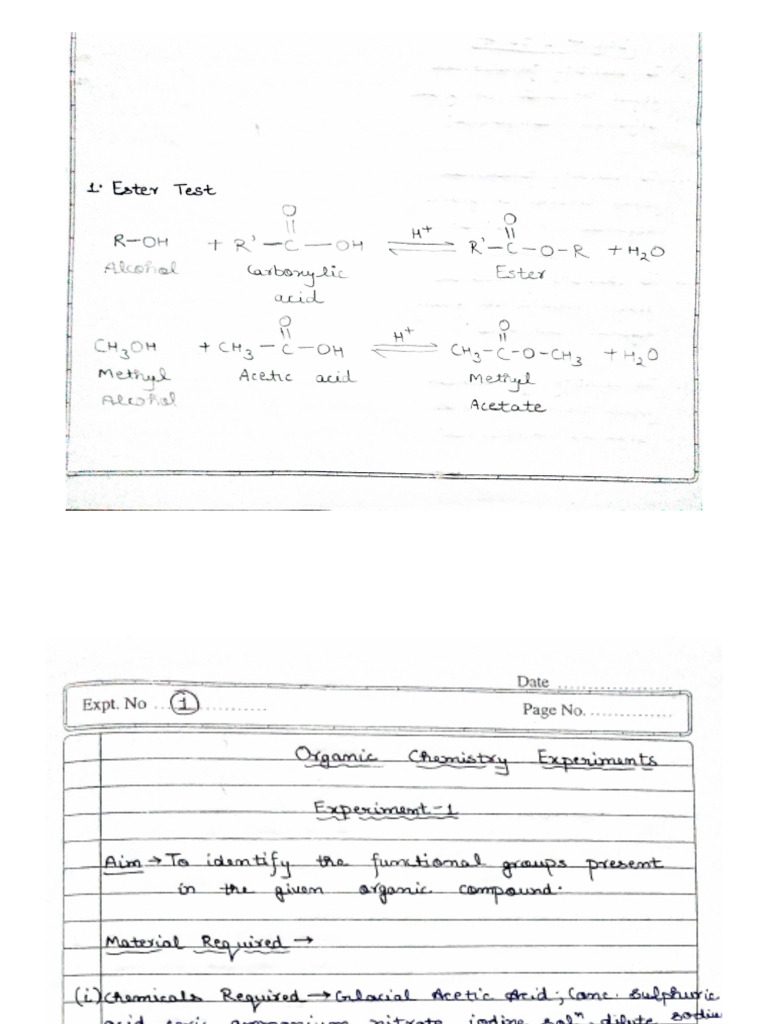 1. Ester Test
O O
|| ||
R-OH + R' - C - OH ⇌ H+ R' - C - O - R + H2O
Alcohol Carboxylic Ester
acid
O O
|| ||
CH3OH + CH3 - C - OH ⇌ H+ CH3 - C - O - CH3 + H2O
Methyl Acetic acid Methyl
Alcohol Acetate
Date ....................
Expt. No ...1............
Page No. ..............
Organic Chemistry Experiments
Experiment-1
Aim → To identify the functional groups present
in the given organic compound.
Material Required →
(i) Chemicals Required → Glacial Acetic Acid; Conc. Sulphuric
acid, ceric ammonium nitrate, iodine solⁿ, dilute sodiu